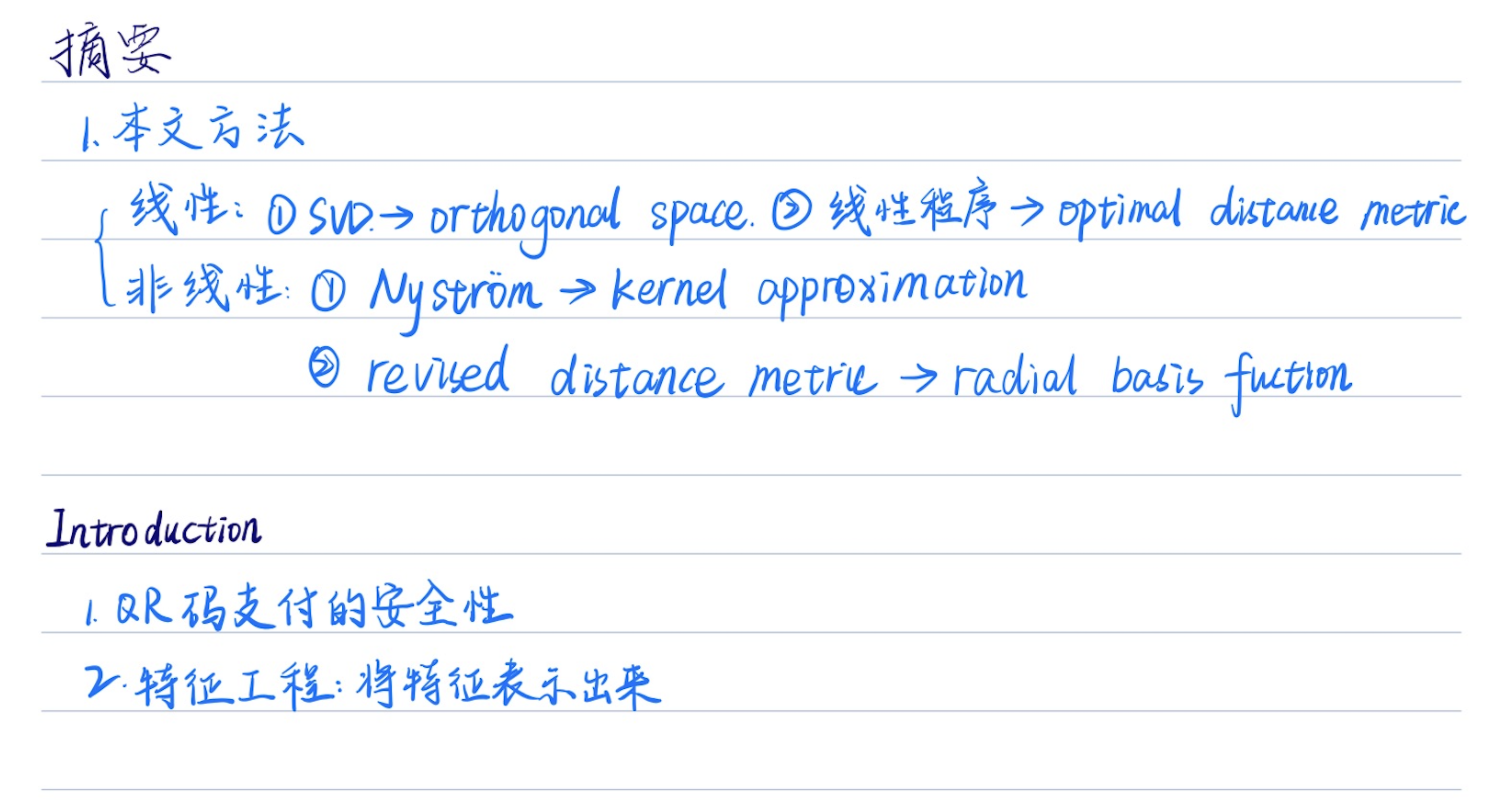 摘要
1. 本文方法
线性: ① SVD. → orthogonal space. ② 线性程序 → optimal distance metric
非线性: ① Nyström → kernel approximation
② revised distance metric → radial basis fuction
Introduction
1. QR码支付的安全性
2. 特征工程: 将特征表示出来